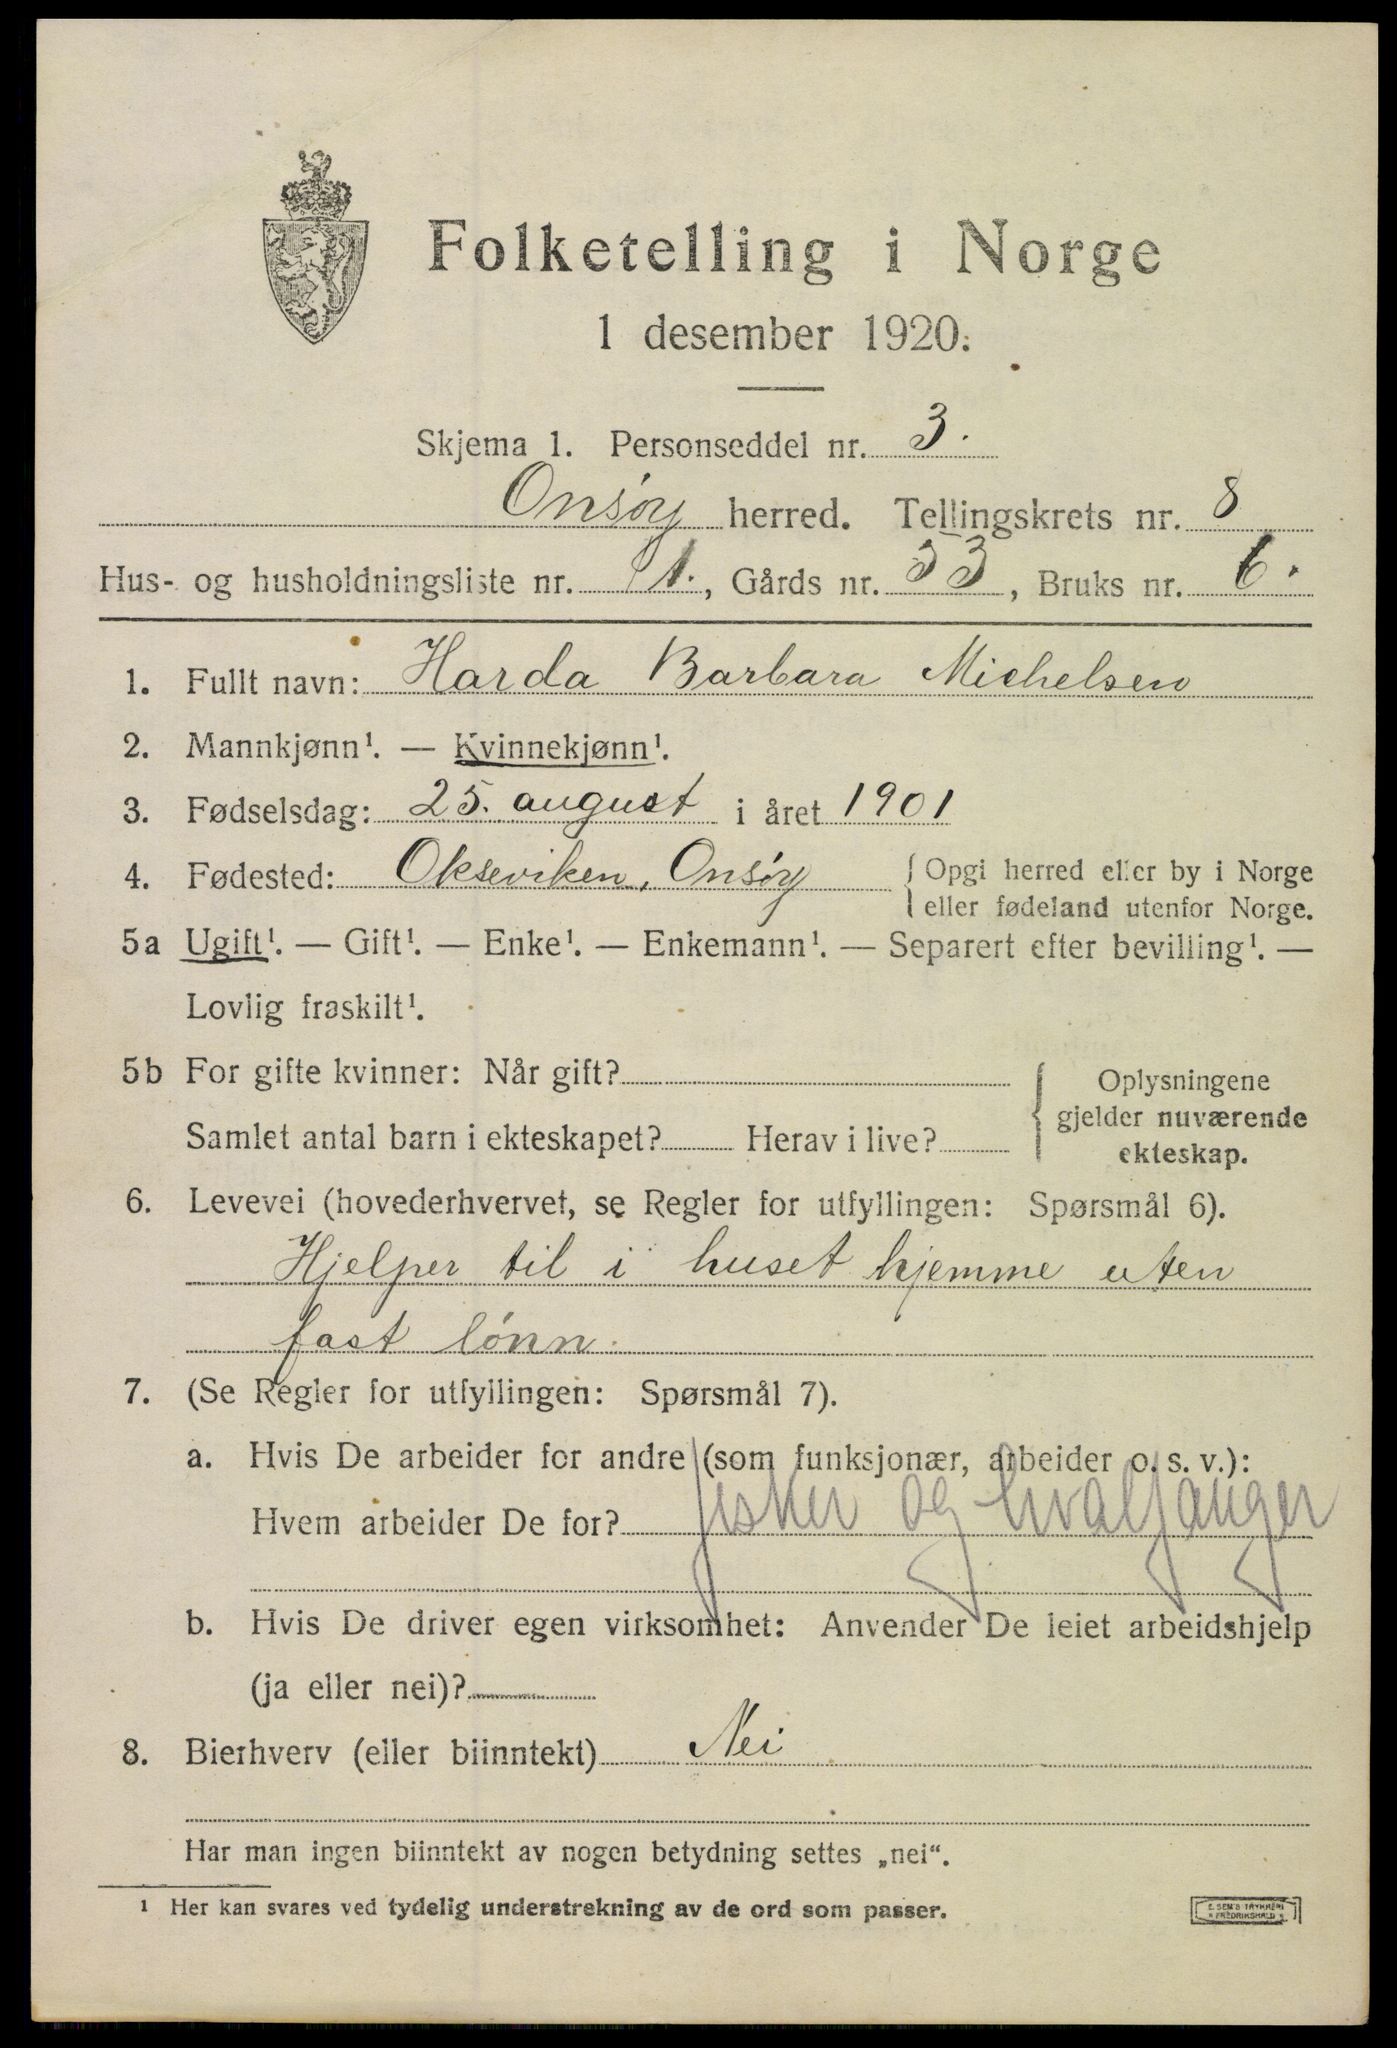 Folketelling i Norge
1 desember 1920.
Skjema 1. Personseddel nr. 3.
Onsøy herred. Tellingskrets nr. 8
Hus- og husholdningsliste nr. 1., Gårds nr. 33, Bruks nr. 6.
1. Fullt navn: Harda Barbara Michelsen
2. Mannkjønn¹. — Kvinnekjønn¹.
3. Fødselsdag: 25. august i året 1901
4. Fødested: Okseviken, Onsøy { Opgi herred eller by i Norge
eller fødeland utenfor Norge.
5a Ugift¹. — Gift¹. — Enke¹. — Enkemann¹. — Separert efter bevilling¹. —
Lovlig fraskilt¹.
5b For gifte kvinner: Når gift?
Samlet antal barn i ekteskapet? Herav i live?
{ Oplysningene
gjelder nuværende
ekteskap.
6. Levevei (hovederhvervet, se Regler for utfyllingen: Spørsmål 6).
Hjelper til i huset hjemme uten
fast lønn.
7. (Se Regler for utfyllingen: Spørsmål 7).
a. Hvis De arbeider for andre (som funksjonær, arbeider o. s. v.):
Hvem arbeider De for? fisker og hvalfanger
b. Hvis De driver egen virksomhet: Anvender De leiet arbeidshjelp
(ja eller nei)?
8. Bierhverv (eller biinntekt) Nei
Har man ingen biinntekt av nogen betydning settes „nei“.
¹ Her kan svares ved tydelig understrekning av de ord som passer.
E. SEM'S TRYKKERI
FREDRIKSHALD